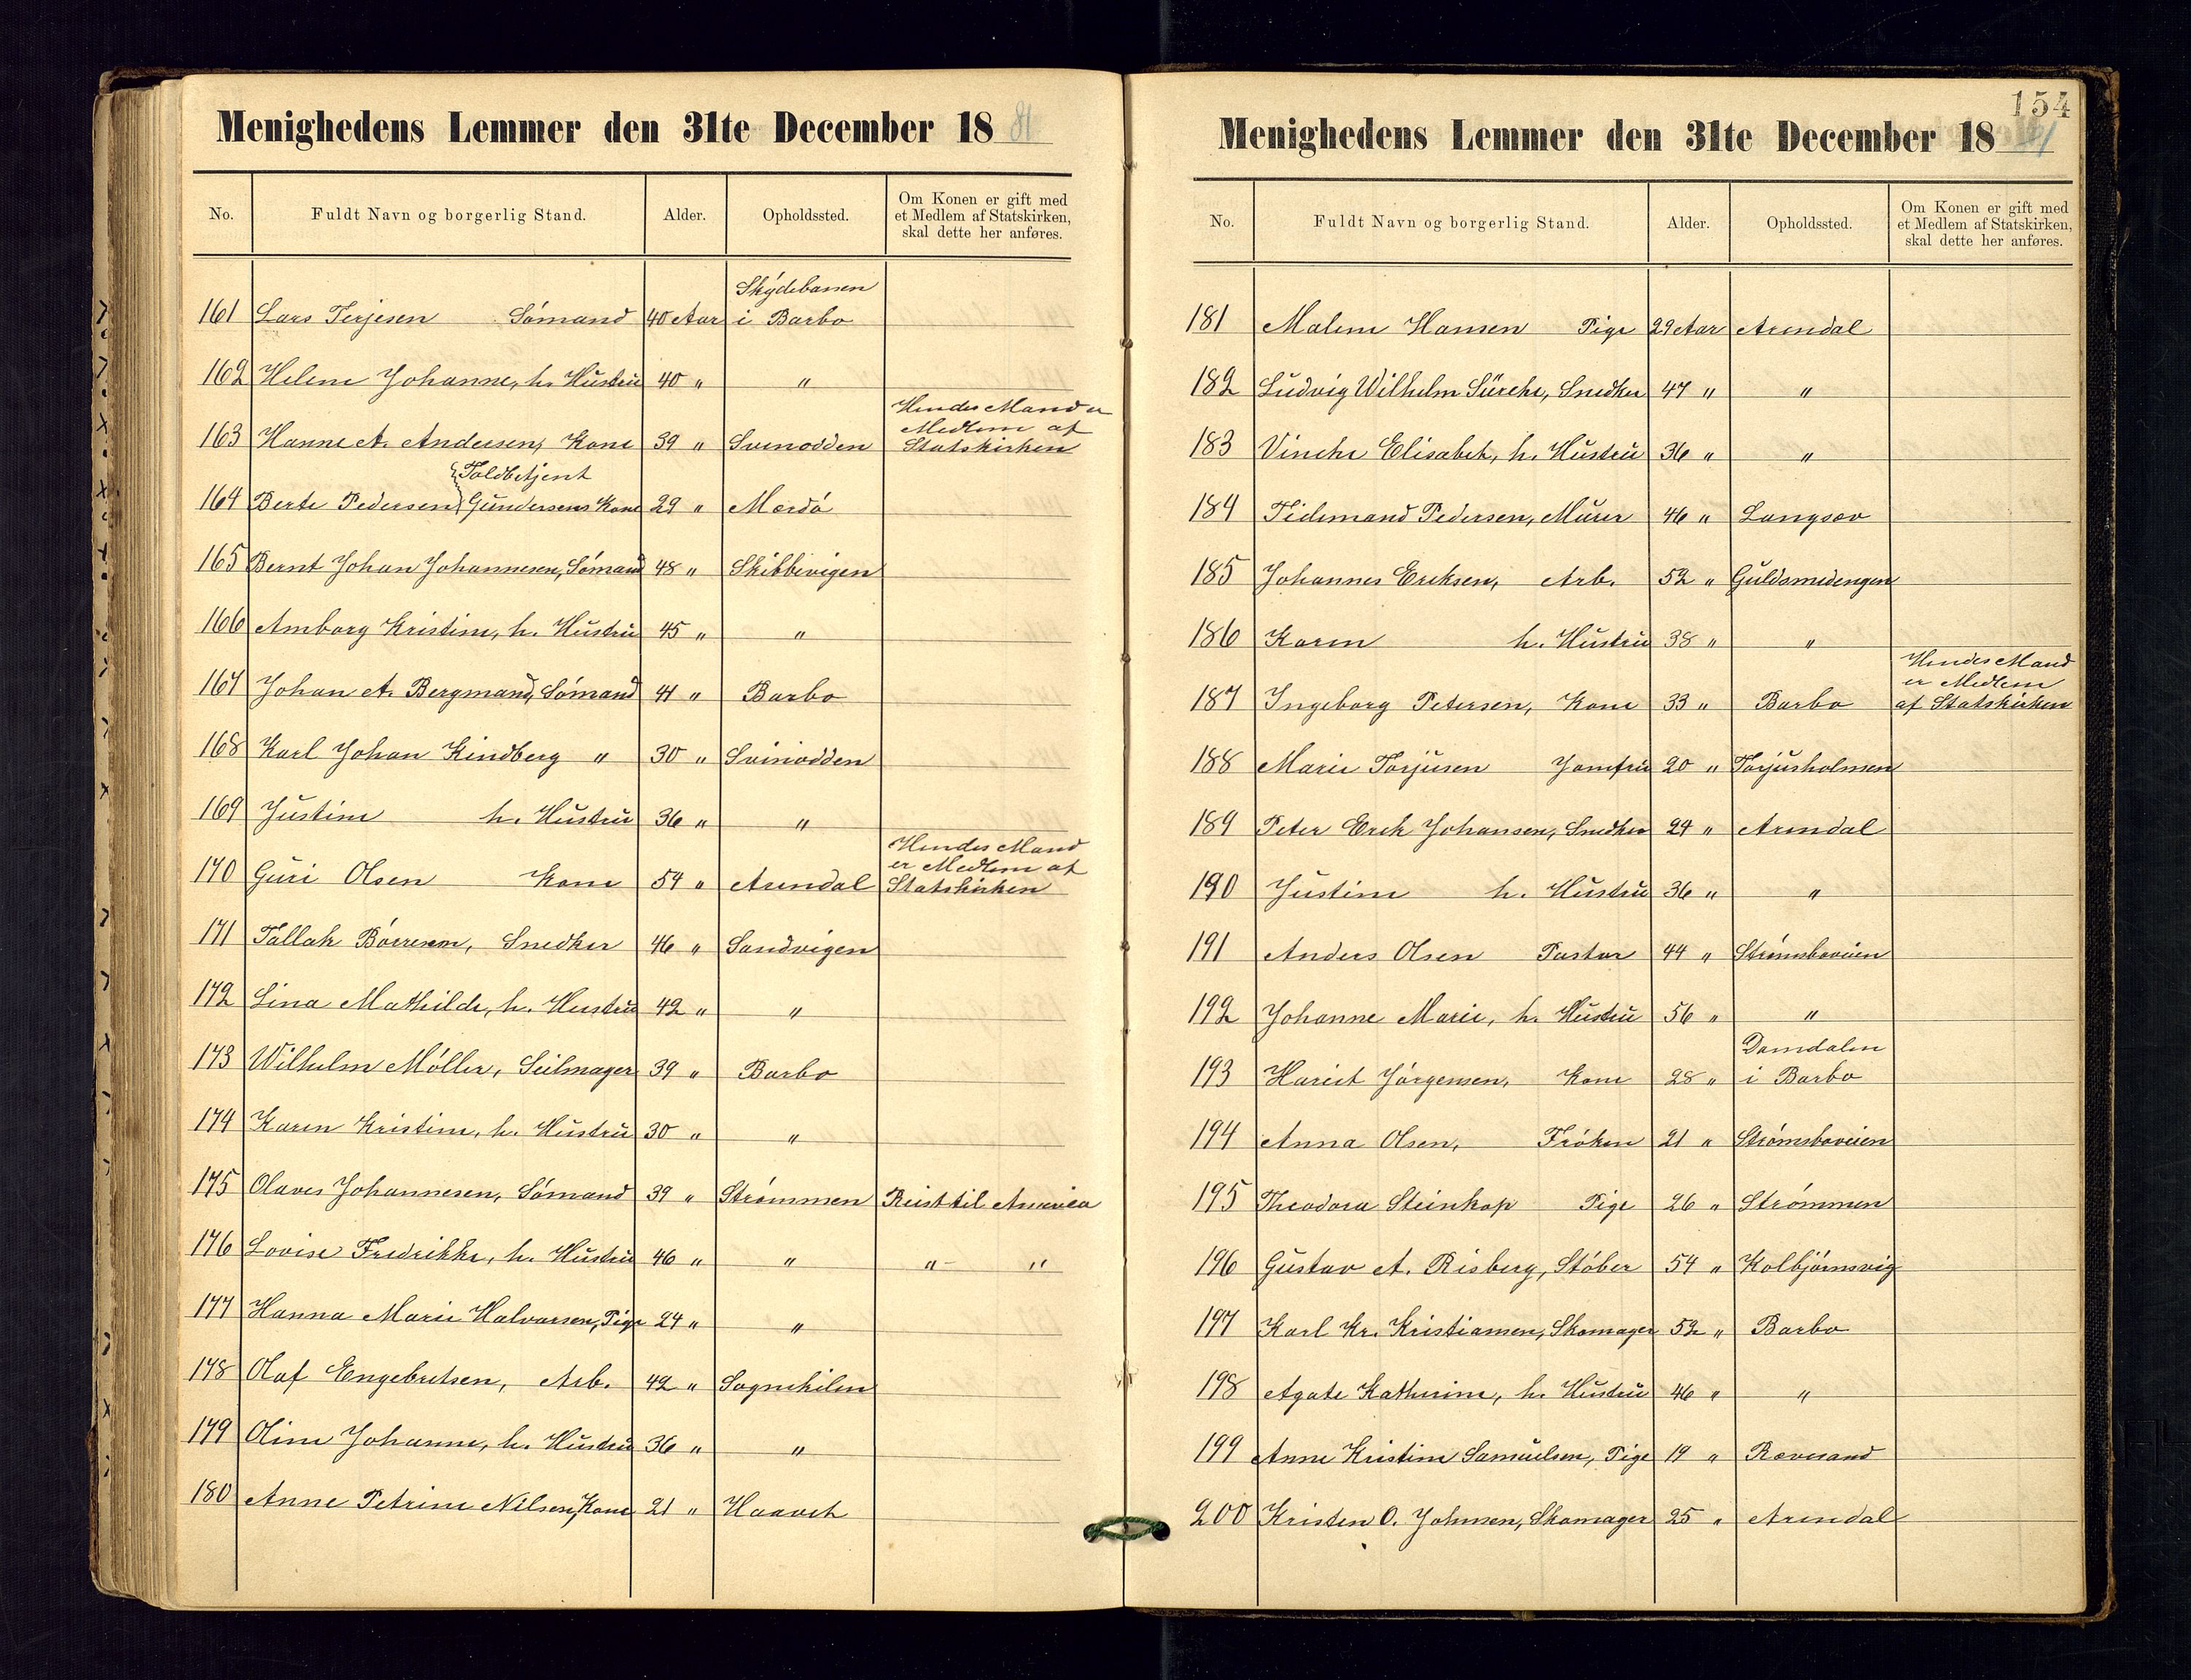 Menighedens Lemmer den 31te December 1881
No. Fuldt Navn og borgerlig Stand. Alder. Opholdssted. Om Konen er gift med et Medlem af Statskirken, skal dette her anføres.
Skydebanen
161 Lars Terjesen Sömand 40 Aar i Barbo
162 Helene Johanne, h. Hustru 40 " "
Hendes Mand er
Medlem af
163 Hanne A. Andersen, Kone 39 " Svinodden Statskirken
Toldbetjent
164 Berte Pedersen Gundersens Kone 29 " Merdö
165 Bernt Johan Johannesen, Sömand 48 " Skibbvigen
166 Amborg Kristine, h. Hustru 45 " "
167 Johan A. Bergmand, Sömand 41 " Barbo
168 Karl Johan Kindberg " 30 " Svinodden
169 Justine h. Hustru 36 " "
Hendes Mand
er Medlem af
170 Guri Olsen Kone 54 " Arendal Statskirken
171 Tallak Börresen, Snedker 46 " Sandvigen
172 Lina Mathilde, h. Hustru 42 " "
173 Wilhelm Möller, Seilmager 39 " Barbo
174 Karen Kristine, h. Hustru 30 " "
175 Olaves Johannesen, Sömand 39 " Strömmen Reist til America
176 Lovise Fredrikke, h. Hustru 46 " " " "
177 Hanna Marie Halvorsen, Pige 24 " "
178 Olaf Engebretsen, Arb. 42 " Songekilen
179 Oline Johanne, h. Hustru 36 " "
180 Anne Petrine Nilsen, Kone 21 " Haavet
154
Menighedens Lemmer den 31te December 1881
No. Fuldt Navn og borgerlig Stand. Alder. Opholdssted. Om Konen er gift med et Medlem af Statskirken, skal dette her anføres.
181 Malene Hansen Pige 29 Aar Arendal
182 Ludvig Wilhelm Sürche, Snedker 47 " "
183 Vinche Elisabet, h. Hustru 36 " "
184 Tidemand Pedersen, Murer 46 " Langsæv
185 Johannes Ericksen, Arb. 52 " Guldsmedengen
186 Karen h. Hustru 38 " "
Hendes Mand
er Medlem
187 Ingeborg Petersen, Kone 33 " Barbo af Statskirken
188 Marie Torjusen Jomfru 20 " Torjusholmen
189 Peter Erik Johansen, Snedker 24 " Arendal
190 Justine h. Hustru 36 " "
191 Anders Olsen Pastor 44 " Strömsboveien
192 Johanne Marie, h. Hustru 56 " "
Damdalen
193 Hariet Jörgensen, Kone 28 " i Barbo
194 Anna Olsen, Fröken 21 " Strömsboveien
195 Theodora Steinkop Pige 26 " Strömmen
196 Gustav A. Risberg, Stöber 54 " Kolbjörnsvig
197 Karl Kr. Kristiansen, Skomager 52 " Barbo
198 Agate Katherine, h. Hustru 46 " "
199 Anne Kristine Samuelsen, Pige 19 " Rævesand
200 Kristen O. Johnsen, Skomager 25 " Arendal